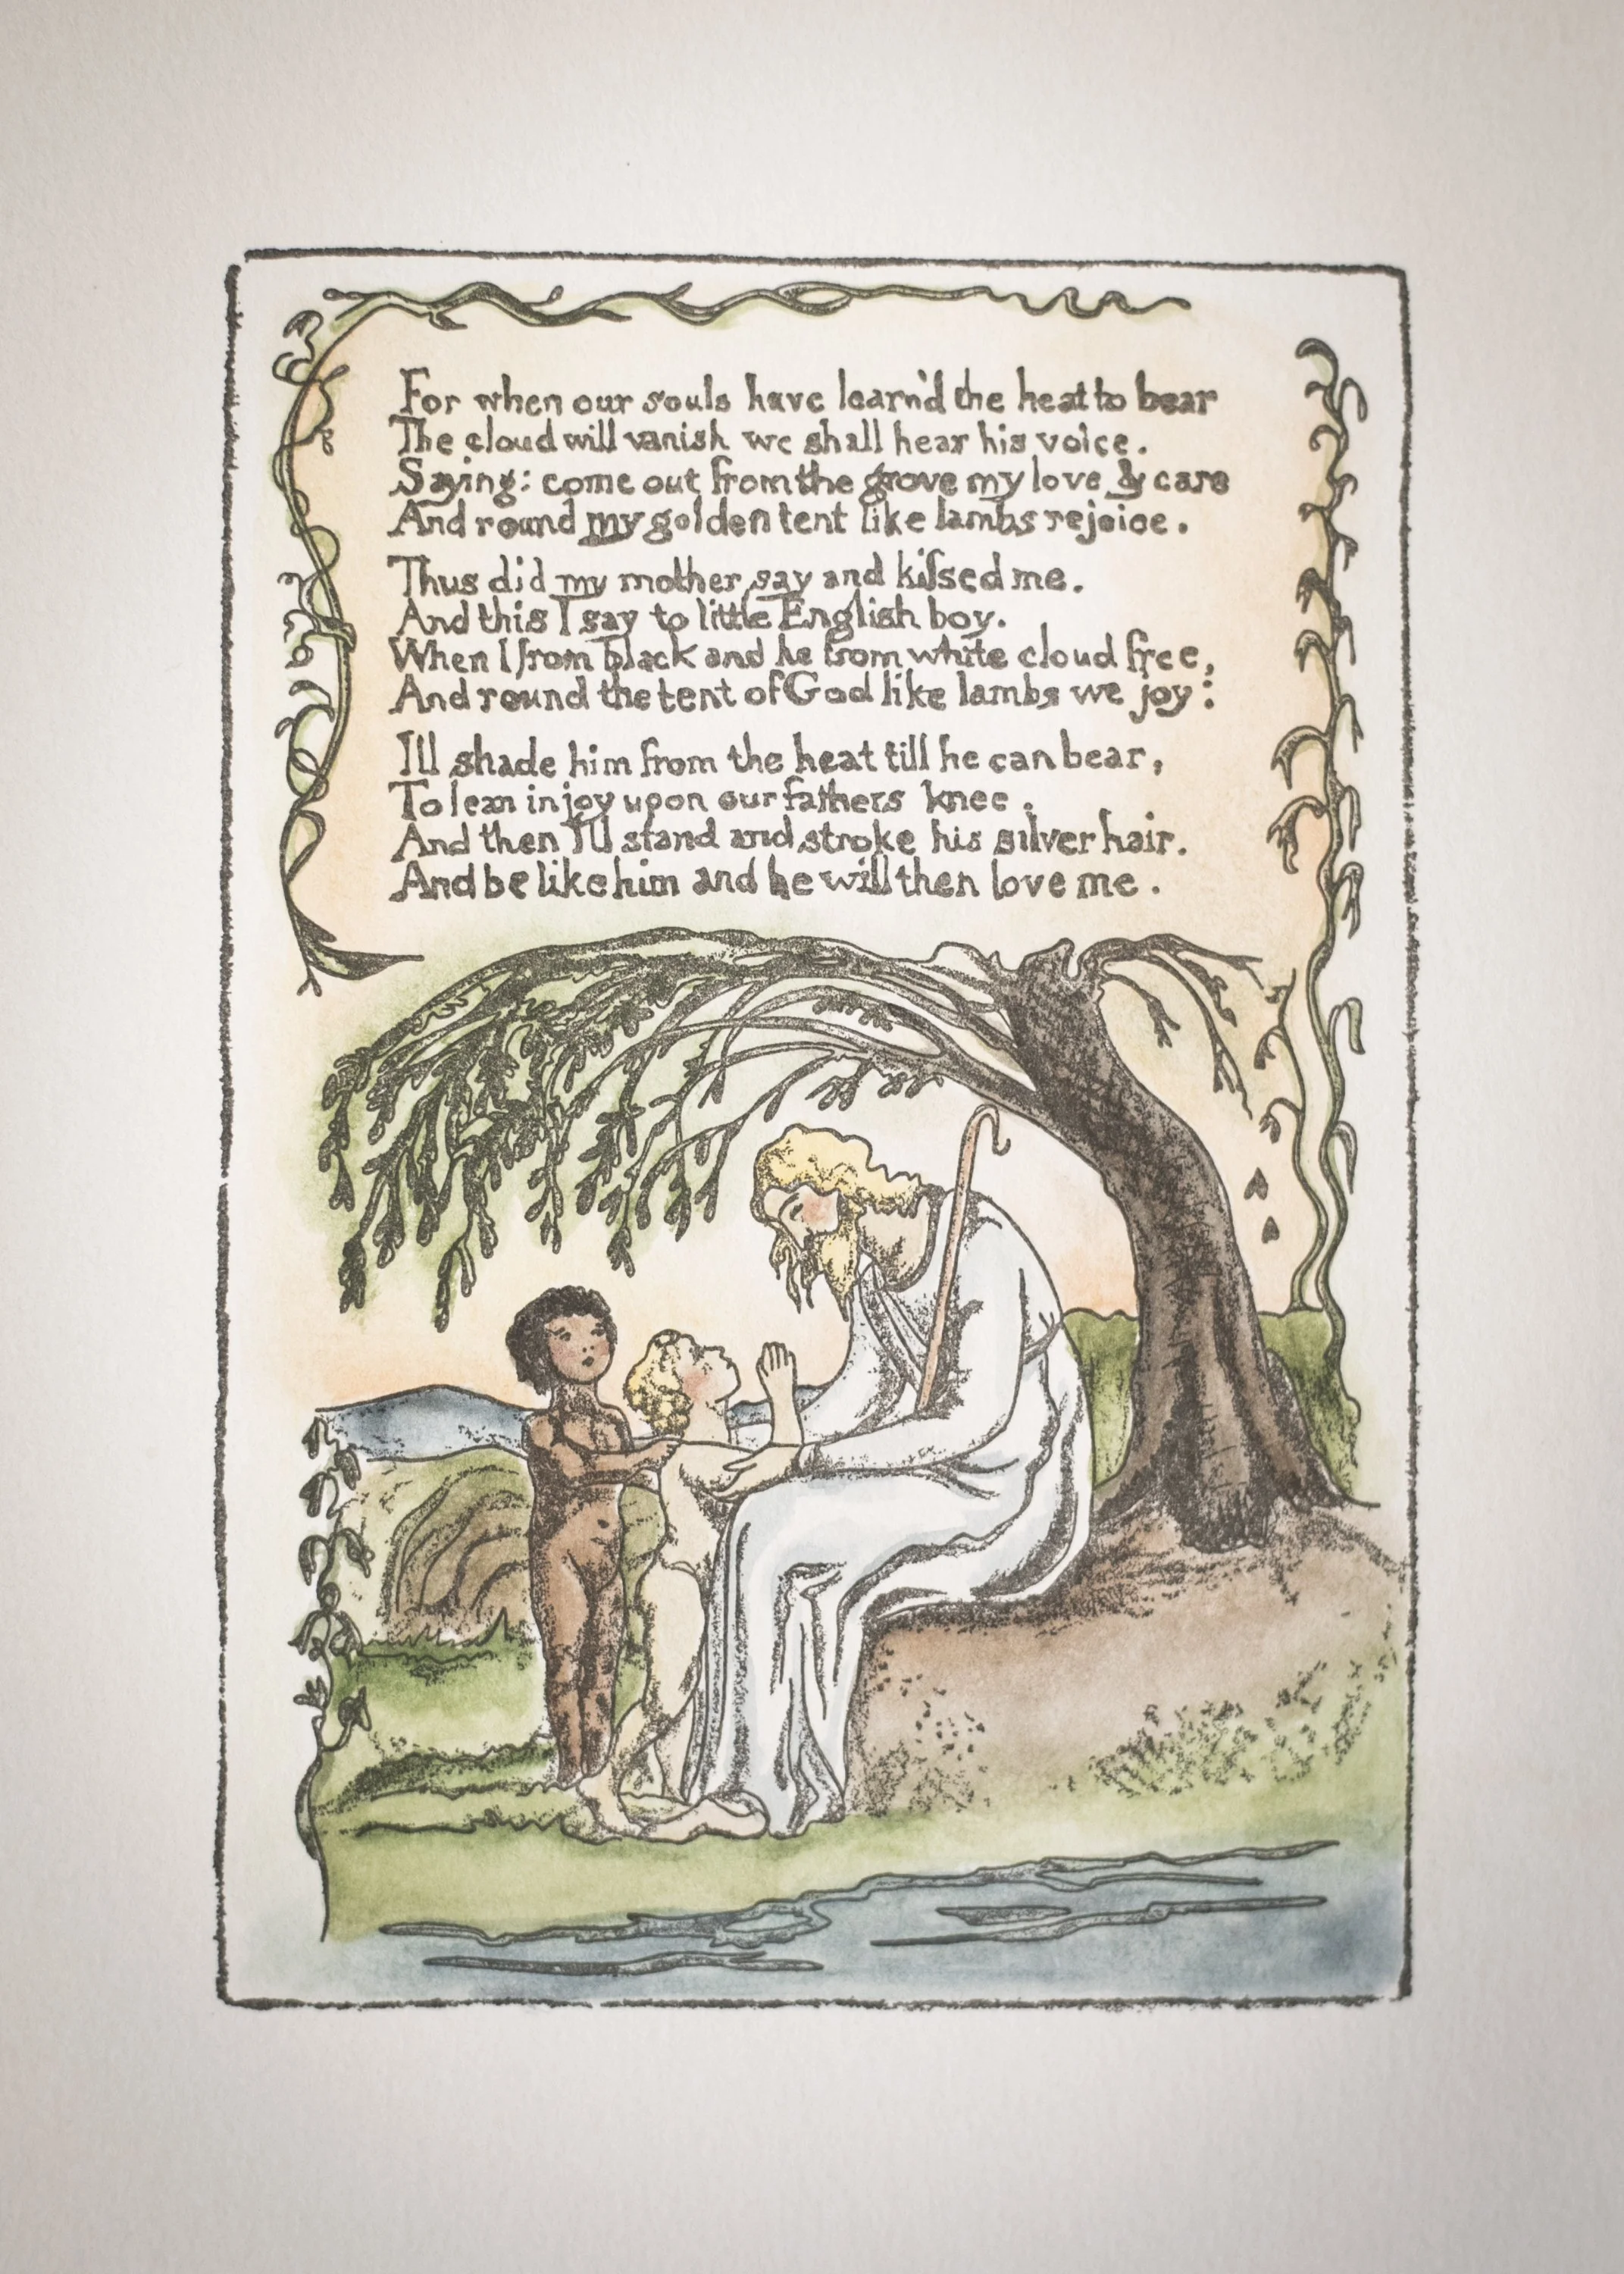 For when our souls have learn'd the heat to bear
The cloud will vanish we shall hear his voice.
Saying: come out from the grove my love & care
And round my golden tent like lambs rejoice.
Thus did my mother say and kifsed me.
And this I say to little English boy.
When I from black and he from white cloud free,
And round the tent of God like lambs we joy:
Ill shade him from the heat till he can bear,
To lean in joy upon our fathers knee.
And then I'll stand and stroke his silver hair.
And be like him and he will then love me.